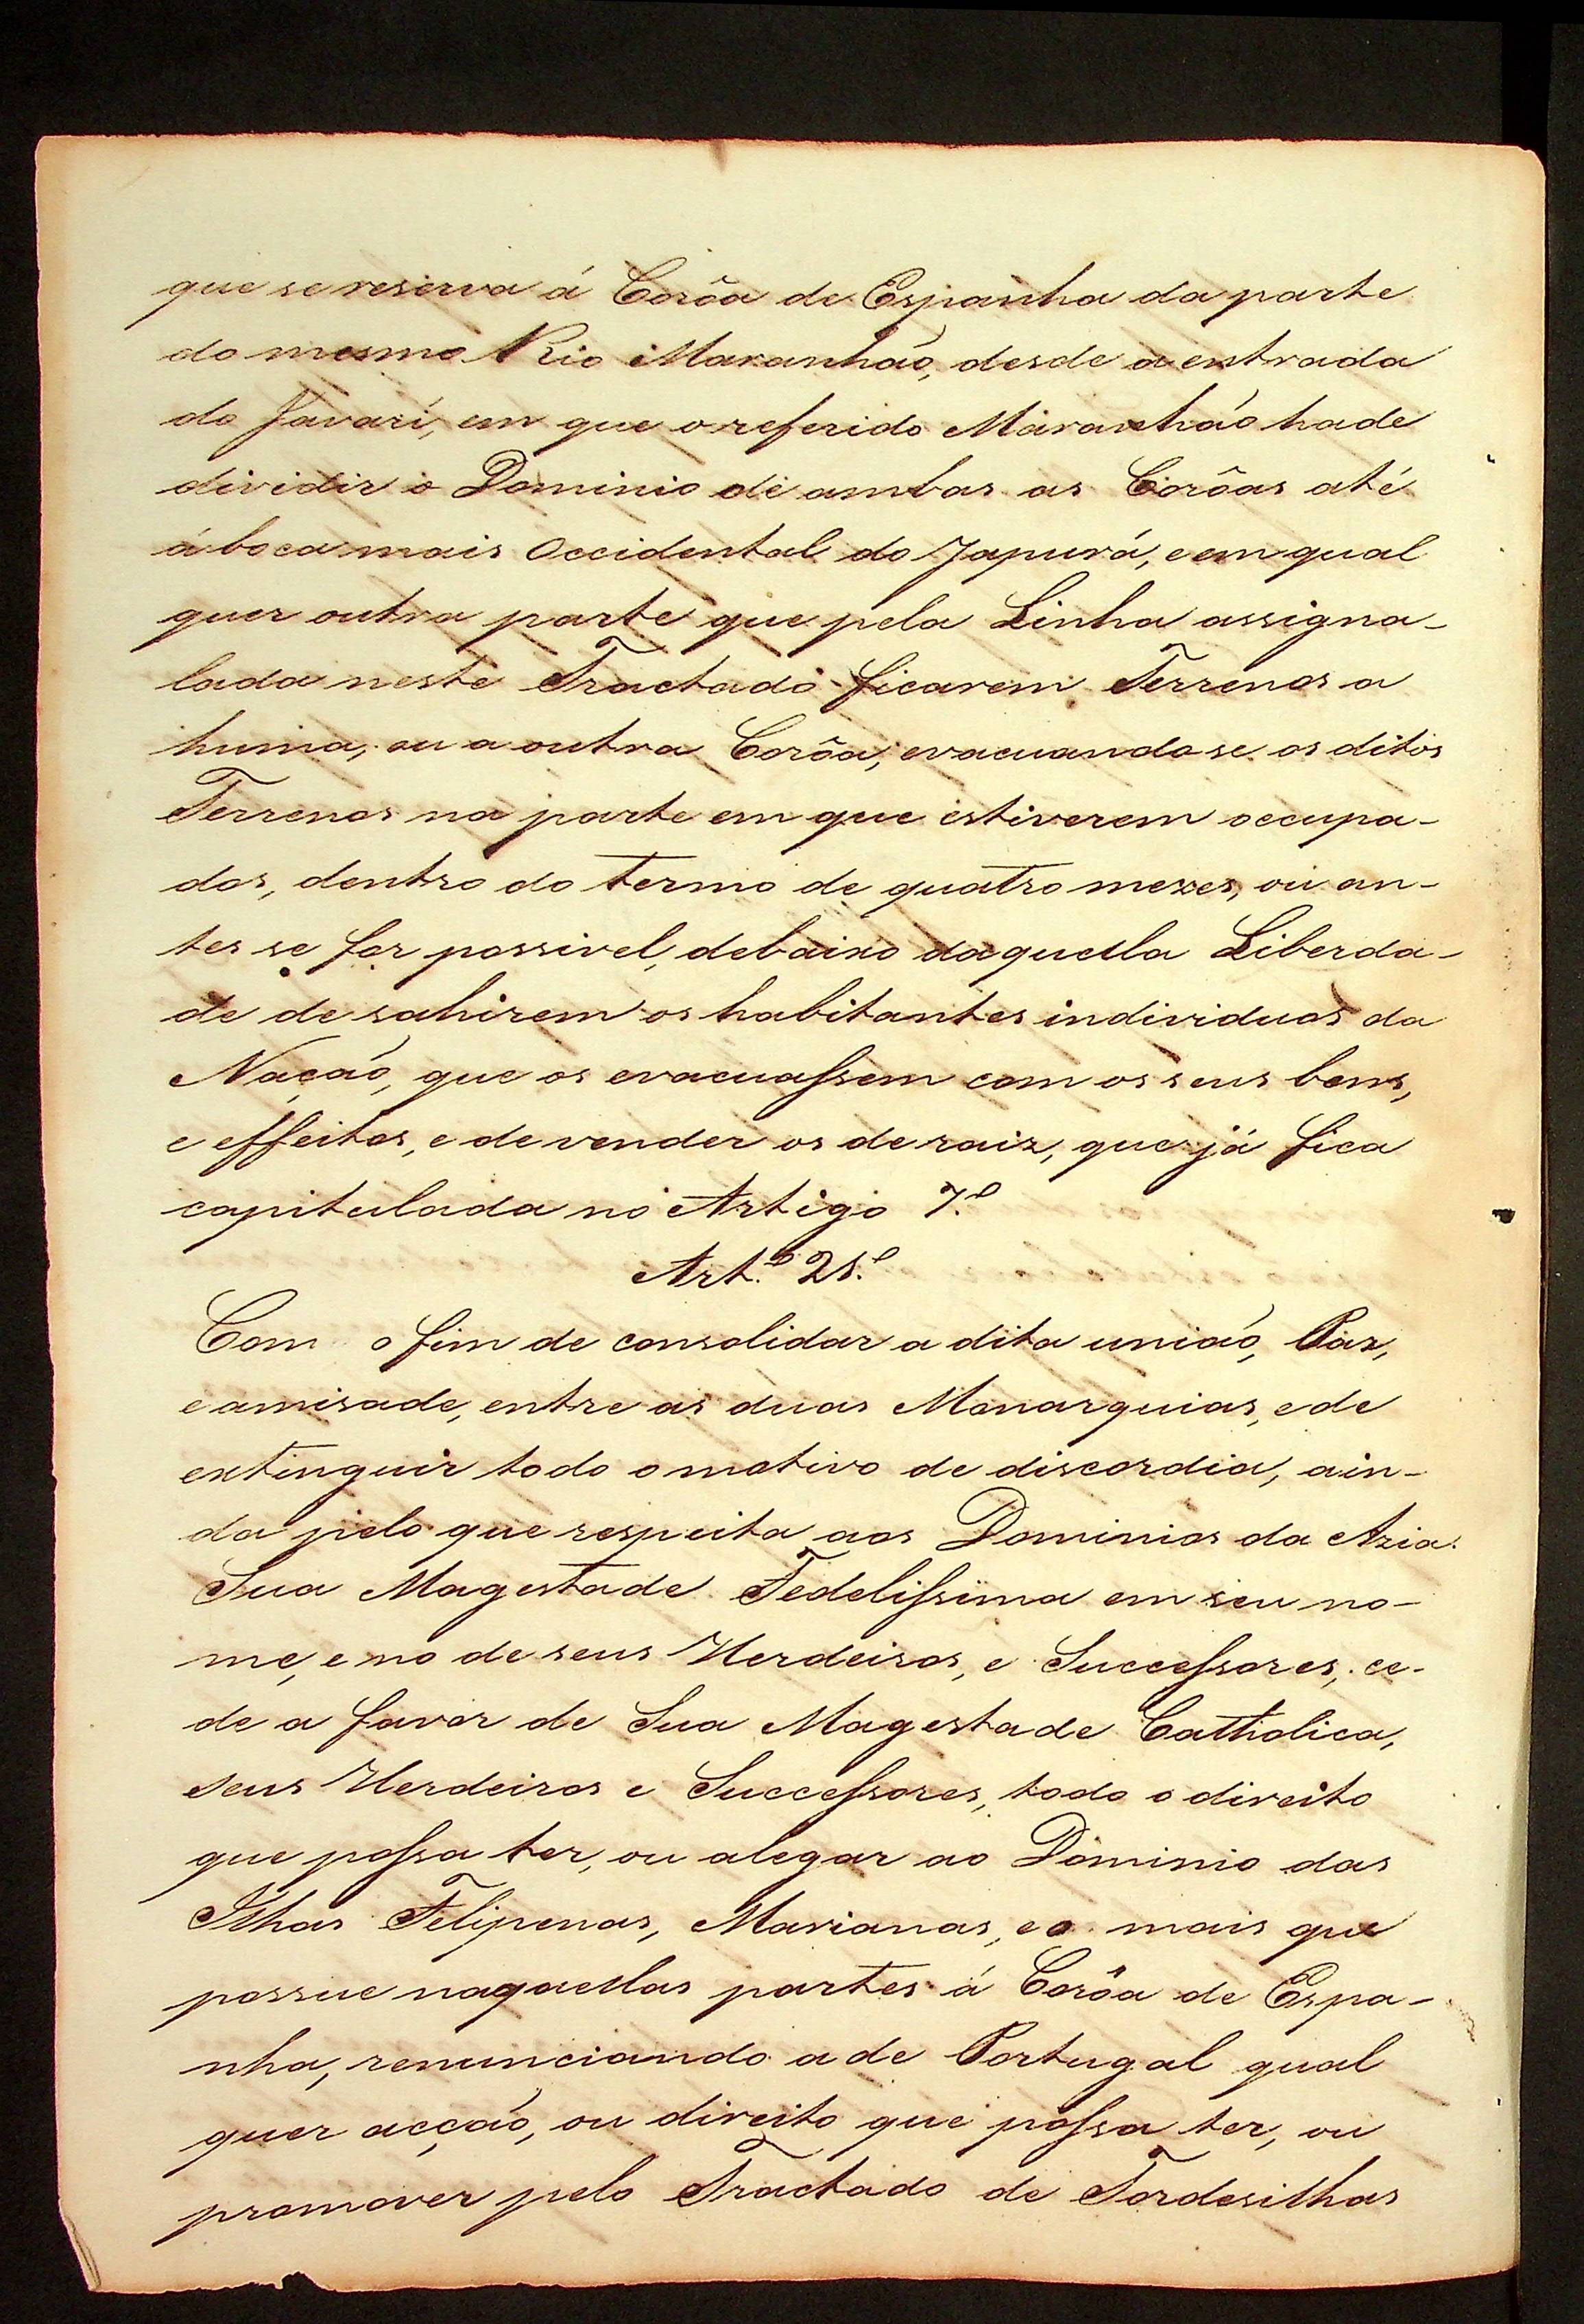 que se reserva á Corôa de Espanha da parte
do mesmo Rio Maranhão, desde a entrada
do Javarí, em que o referido Maranhão hade
dividir o Dominio de ambas as Corôas até
á boca mais Occidental do Japurá, e em qual
quer outra parte que pela Linha assigna-
lada neste Tractado ficarem Terrenos a
huma, ou a outra Corôa, evacuando se os ditos
Terrenos na parte em que estiverem occupa-
dos, dentro do termo de quatro mezes, ou an-
tes se for possivel, debaixo daquella Liberda-
de de sahirem os habitantes individuos da
Nação, que os evacuassem com os seus bens,
e effeitos, e de vender os de raiz, que já fica
capitulada no Artigo 7.º
Art.º 21.º
Com o fim de consolidar a dita união, Paz,
e amisade, entre as duas Monarquias, e de
extinguir todo o motivo de discordia, ain-
da pelo que respeita aos Dominios da Azia.
Sua Magestade Fedelissima em seu no-
me, e no de seus Herdeiros, e Successores, ce-
de a favor de Sua Magestade Catholica,
seus Herdeiros e Successores, todo o direito
que possa ter, ou alegar ao Dominio das
Ilhas Felipenas, Marianas, e o mais que
possue naquellas partes á Corôa de Espa-
nha, renunciando a de Portugal qual
quer acção, ou direito que possa ter, ou
promover pelo Tractado de Tordesilhas